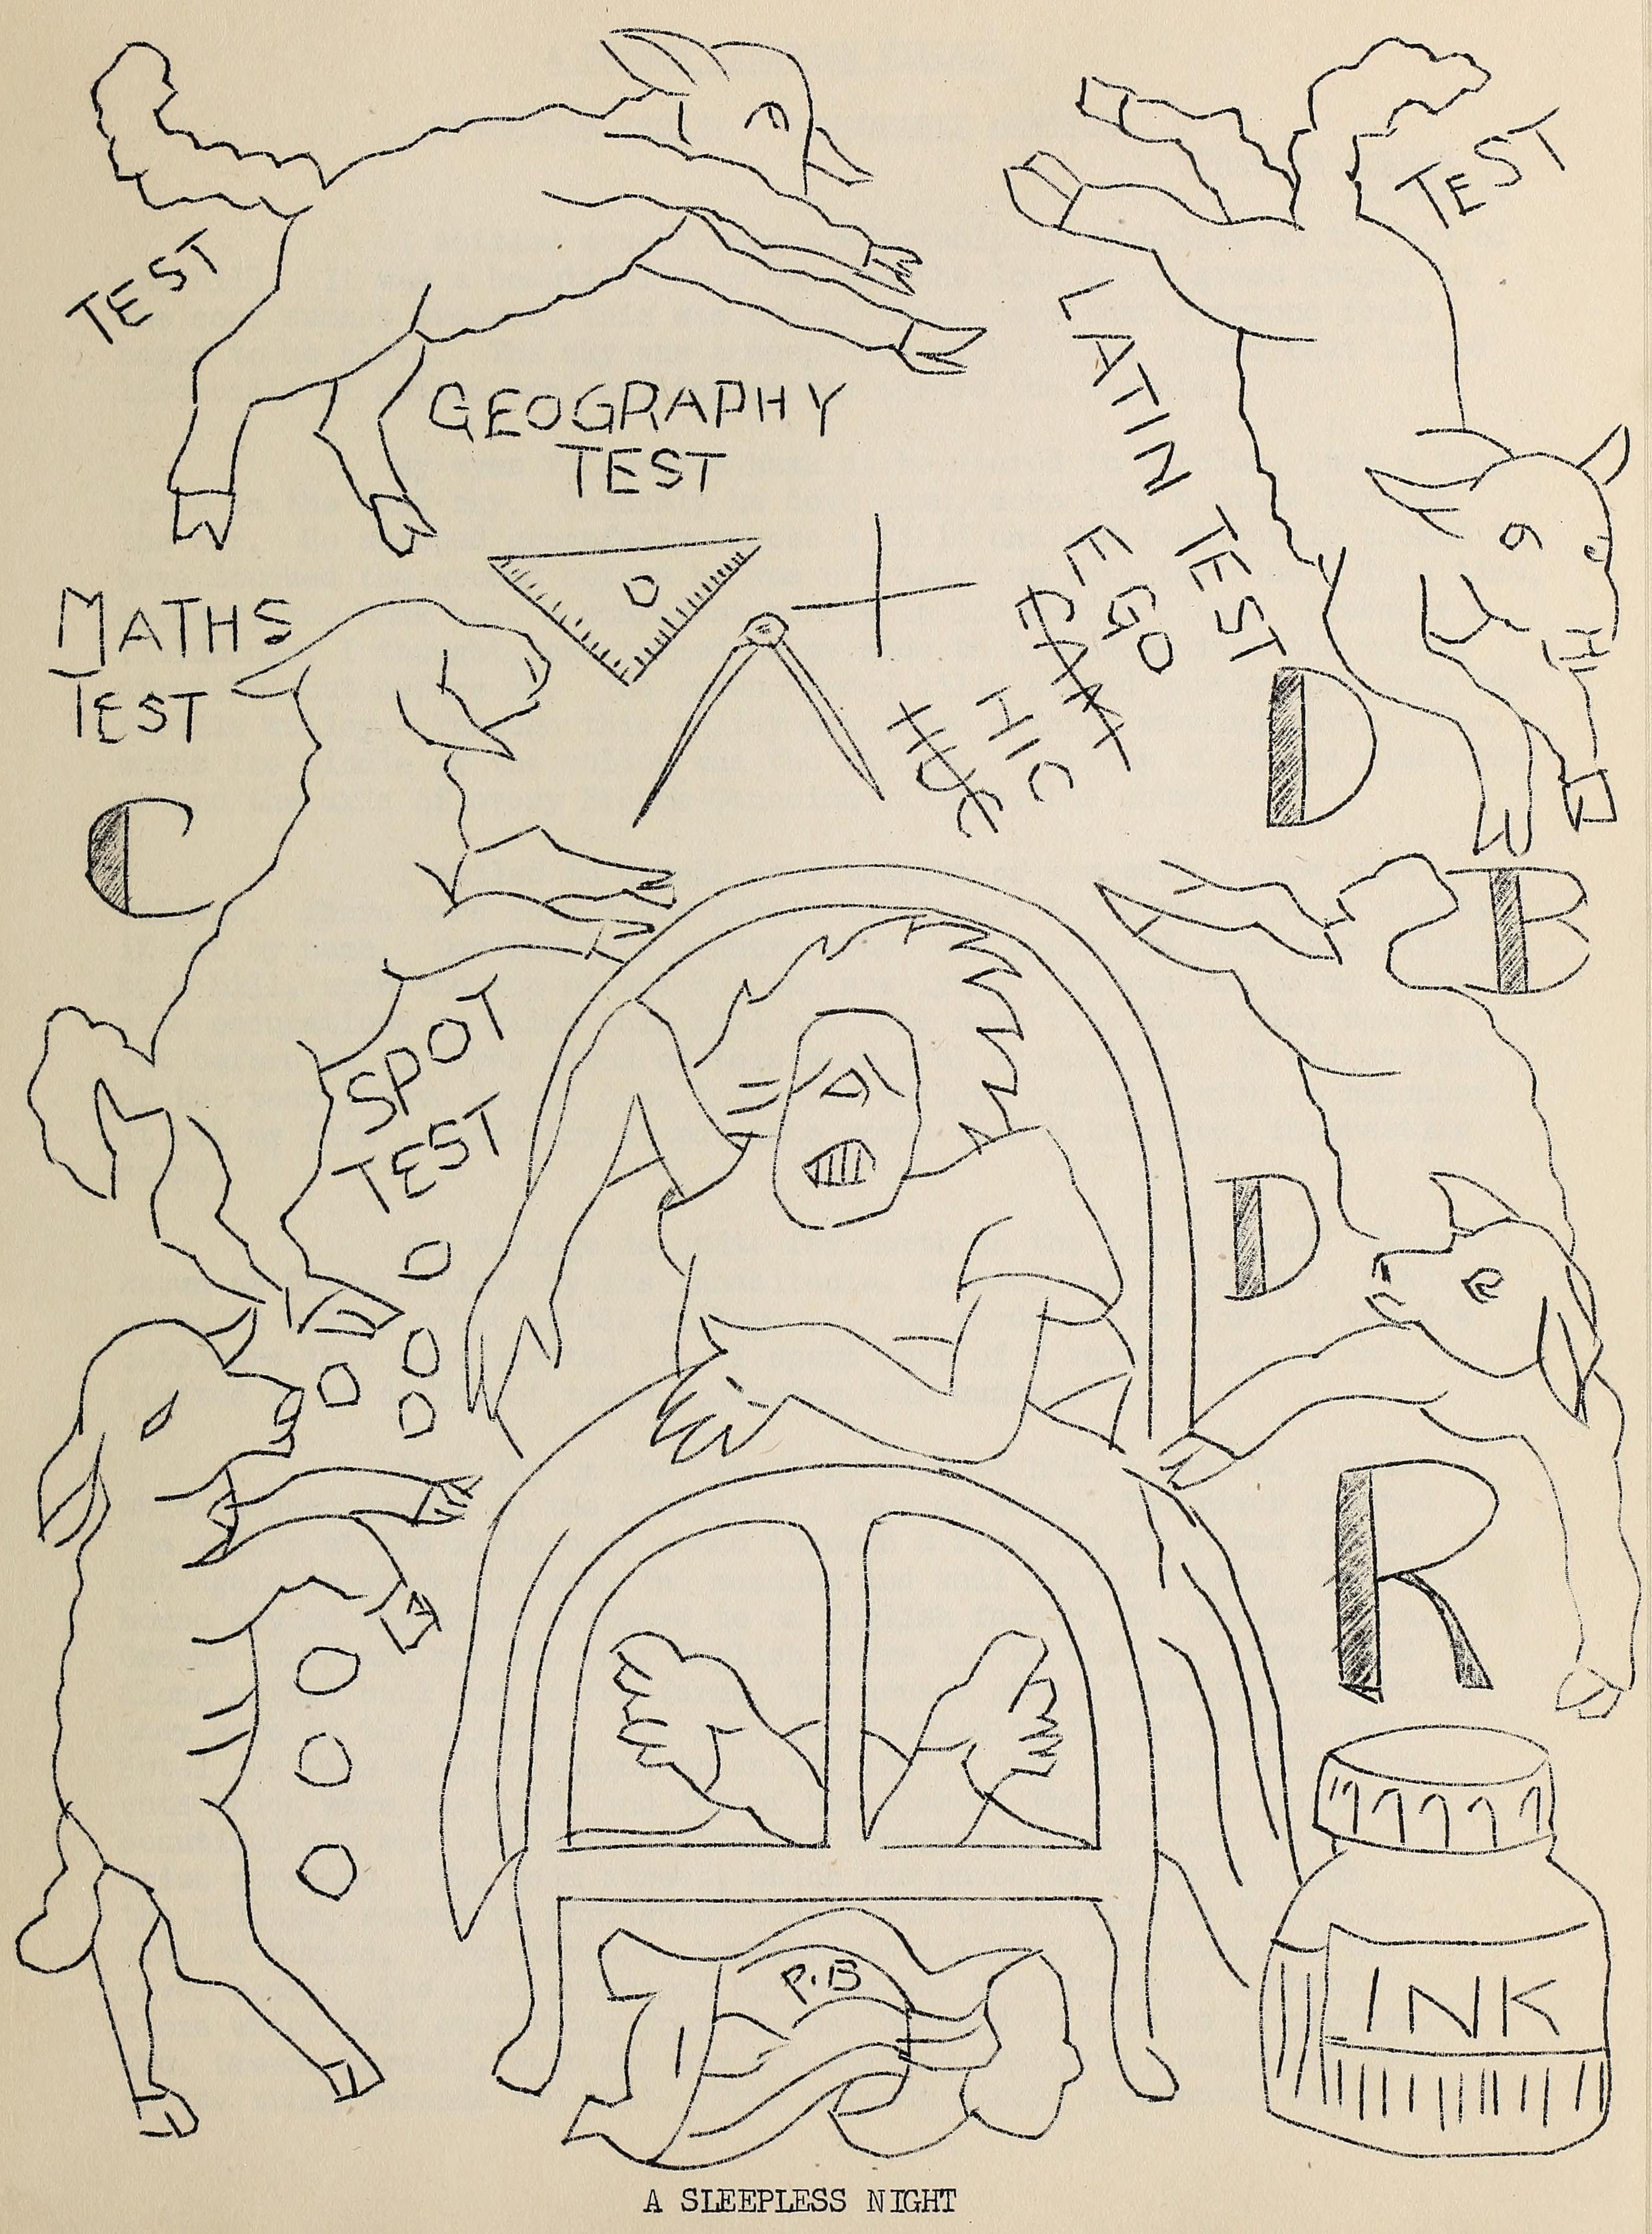 TEST
TEST
GEOGRAPHY
TEST
LATIN TEST
EGO
HIC
HUC
MATHS
TEST
C
D
B
SPOT
TEST
A
D
R
P.B
INK
A SLEEPLESS NIGHT